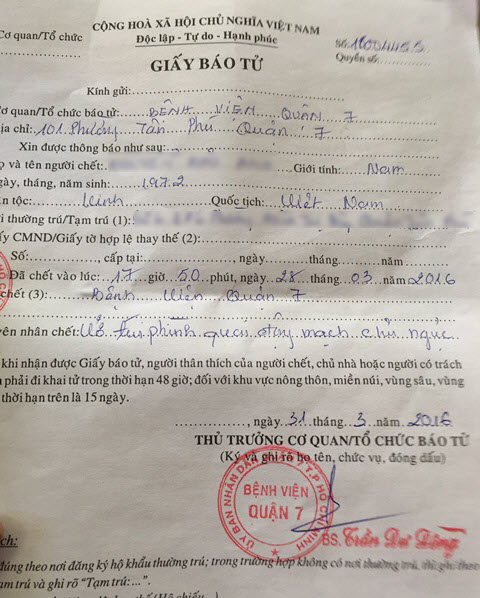 CỘNG HOÀ XÃ HỘI CHỦ NGHĨA VIỆT NAM
Cơ quan/Tổ chức
Độc lập - Tự do - Hạnh phúc
Số:
Quyển số:
GIẤY BÁO TỬ
Kính gửi:
Cơ quan/Tổ chức báo tử: BỆNH VIỆN QUẬN 7
ịa chỉ: 101 Phường Tân Phú Quận 7
Xin được thông báo như sau:
ọ và tên người chết: Giới tính: Nam
gày, tháng, năm sinh: 1972
n tộc: Kinh Quốc tịch: Việt Nam
i thường trú/Tạm trú (1):
ấy CMND/Giấy tờ hợp lệ thay thế (2):
Số: , cấp tại: , ngày tháng năm
Đã chết vào lúc: 17 giờ 50 phút, ngày 28 tháng 03 năm 2016
chết (3): Bệnh Viện Quận 7
yên nhân chết: Vỡ túi phình quai động mạch chủ ngực
khi nhận được Giấy báo tử, người thân thích của người chết, chủ nhà hoặc người có trách
phải đi khai tử trong thời hạn 48 giờ; đối với khu vực nông thôn, miền núi, vùng sâu, vùng
thời hạn trên là 15 ngày.
, ngày 31 tháng 3 năm 2016
THỦ TRƯỞNG CƠ QUAN/TỔ CHỨC BÁO TỬ
(Ký và ghi rõ họ tên, chức vụ, đóng dấu)
ỦY BAN NHÂN DÂN QUẬN 7 T.P HỒ CHÍ MINH
BỆNH VIỆN
QUẬN 7
BS. Trần
ích:
đúng theo nơi đăng ký hộ khẩu thường trú; trong trường hợp không có nơi thường trú, thì ghi theo
ạm trú và ghi rõ "Tạm trú:...".